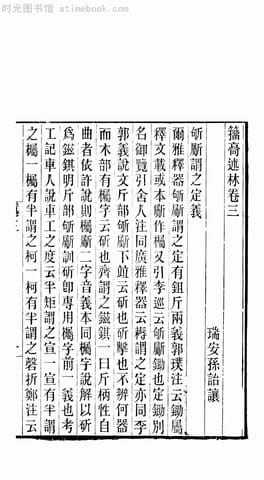 时光图书馆 - atimebook.com
籀廎述林卷三
瑞安孫詒讓
斪斸謂之定義
爾雅釋器斪斸謂之定義又有鉏斤兩義郭璞注云鋤屬
釋文載或本斸作欘又引李巡云斪斸鋤也定鋤别
名御覽引舍人注同廣雅釋器云耨謂之定亦同李
郭義說文斤部斪斸下竝云斫也斫擊也不辨何器
而木部有欘字云斫也齊謂之鎡錤一曰斤柄性自
曲者依許說則欘斸二字音義本同欘字說解以斫
爲鎡錤明斤部斪斸訓斫卽專用欘字前一義也考
工記車人說車工之度云半矩謂之宣一宣有半謂
之欘一欘有半謂之柯一柯有半謂之磬折鄭注云